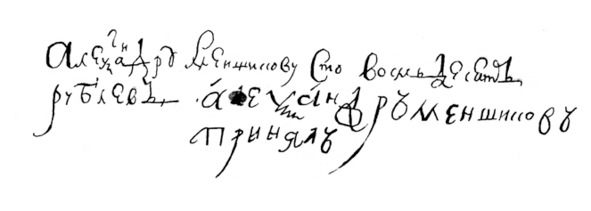 Алеѯандру Меншикову сто восмьдесятъ
рублевъ. алеѯандру меншикову
принялъ